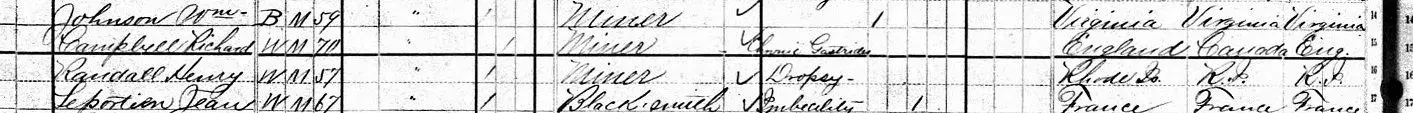 Johnson Wm- B M 59 " 1 Miner ✓ 1 Virginia Virginia Virginia 14 14
Campbell Richard W M 70 " 1 Miner ✓ Chronic Gastrides England Canada Eng. 15 15
Randall Henry W M 57 " 1 Miner ✓ Dropsy- Rhode Is. R.I. R.I. 16 16
Jean W M 67 " 1 Blacksmith ✓ Imbecility 1 France France France 17 17